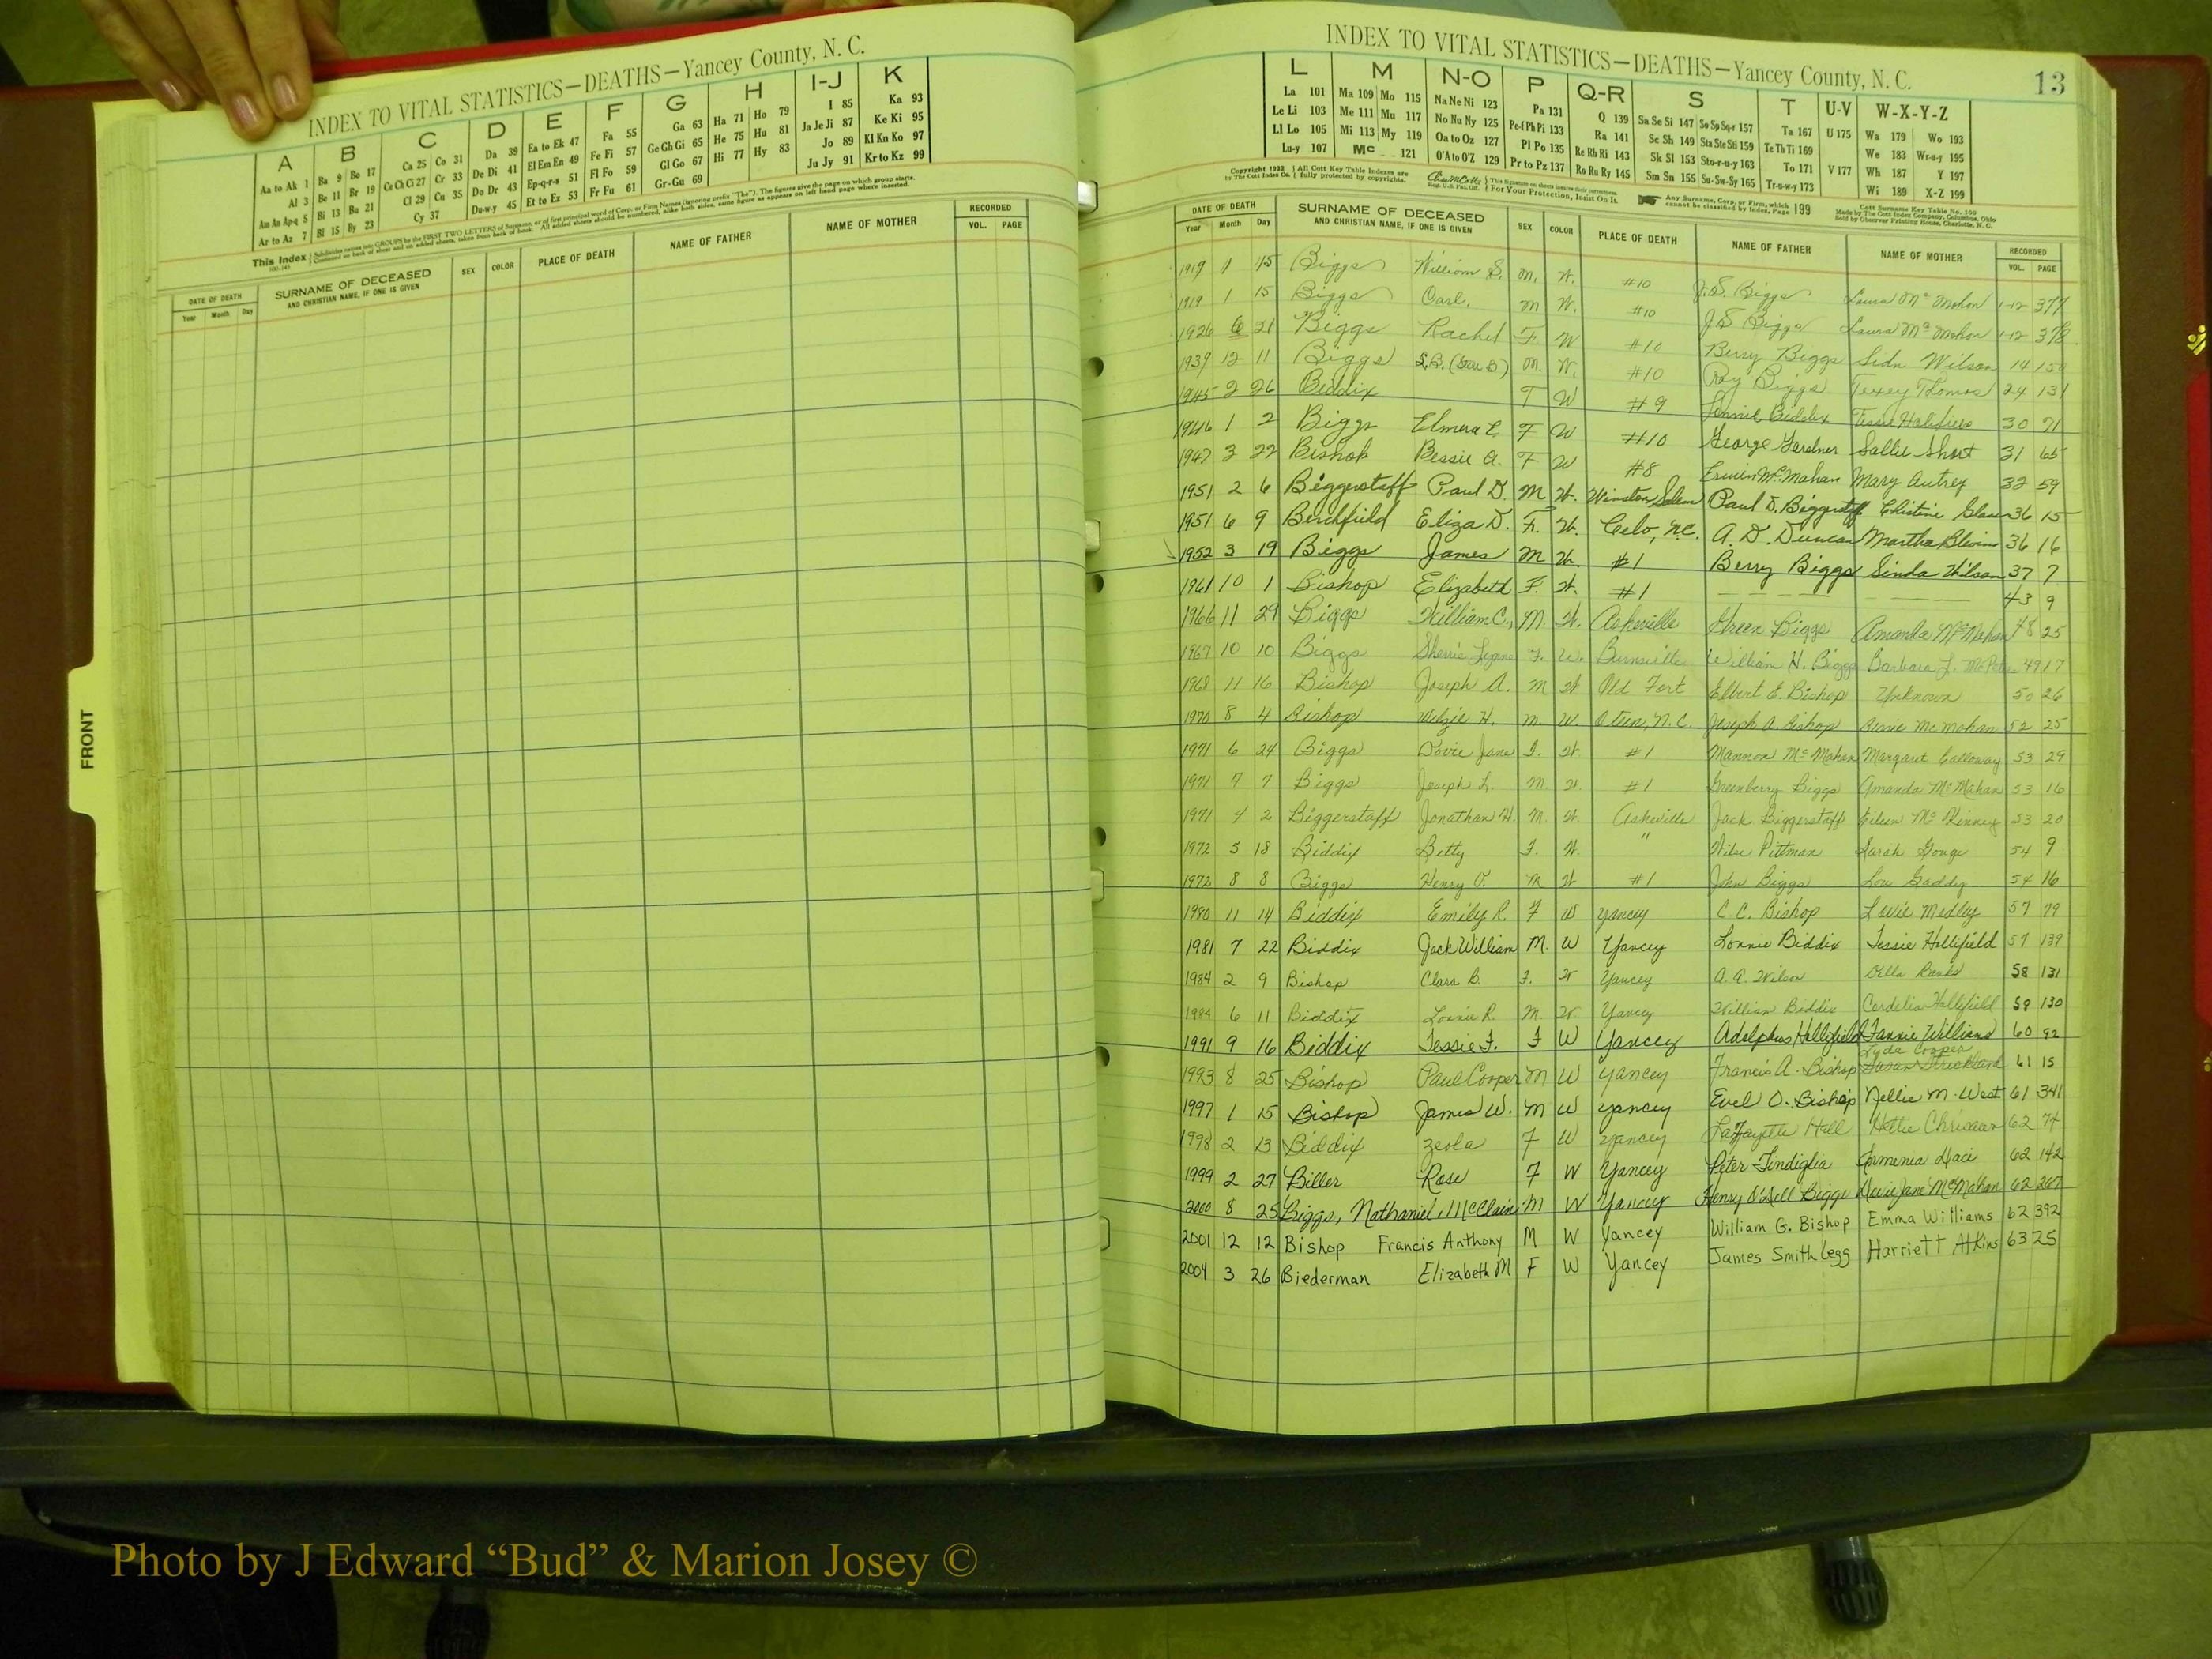 INDEX TO VITAL STATISTICS—DEATHS—Yancey County, N. C.
A B C D E F G H I-J K
Aa to Ak 1 Ba 9 Bo 17 Ca 25 Co 31 Da 39 Ea to Ek 47 Fa 55 Ga 63 Ha 71 Ho 79 I 85 Ka 93
Al 3 Be 11 Br 19 Ce Ch Ci 27 Cr 33 De Di 41 El Em En 49 Fe Fi 57 Ge Gh Gi 65 He 75 Hu 81 Ja Je Ji 87 Ke Ki 95
Am An Ap-q 5 Bi 13 Bu 21 Cl 29 Cu 35 Do Dr 43 Ep-q-r-s 51 Fl Fo 59 Gl Go 67 Hi 77 Hy 83 Jo 89 Kl Kn Ko 97
Ar to Az 7 Bl 15 By 23 Cy 37 Du-w-y 45 Et to Ez 53 Fr Fu 61 Gr-Gu 69 Ju Jy 91 Kr to Kz 99
This Index
DATE OF DEATH SURNAME OF DECEASED SEX COLOR PLACE OF DEATH NAME OF FATHER NAME OF MOTHER RECORDED
Year Month Day AND CHRISTIAN NAME, IF ONE IS GIVEN VOL. PAGE
FRONT
INDEX TO VITAL STATISTICS—DEATHS—Yancey County, N. C. 13
L M N-O P Q-R S T U-V W-X-Y-Z
La 101 Ma 109 Mo 115 Na Ne Ni 123 Pa 131 Q 139 Sa Se Si 147 So Sp Sq-r 157 Ta 167 U 175 Wa 179 Wo 193
Le Li 103 Me 111 Mu 117 No Nu Ny 125 Pe-f Ph Pi 133 Ra 141 Sc Sh 149 Sta Ste Sti 159 Te Th Ti 169 We 183 Wr-u-y 195
Ll Lo 105 Mi 113 My 119 Oa to Oz 127 Pl Po 135 Re Rh Ri 143 Sk Sl 153 Sto-r-u-y 163 To 171 V 177 Wh 187 Y 197
Lu-y 107 Mc 121 O'A to O'Z 129 Pr to Pz 137 Ro Ru Ry 145 Sm Sn 155 Su-Sw-Sy 165 Tr-u-w-y 173 Wi 189 X-Z 199
DATE OF DEATH SURNAME OF DECEASED SEX COLOR PLACE OF DEATH NAME OF FATHER NAME OF MOTHER RECORDED
Year Month Day AND CHRISTIAN NAME, IF ONE IS GIVEN VOL. PAGE
1919 1 15 Biggs William S. M. W. #10 J.S. Biggs Laura McMahon 1-12 377
1919 1 15 Biggs Carl. M W. #10 J S Biggs Laura McMahon 1-12 378
1926 6 21 Biggs Rachel F. W #10 Berry Biggs Wilson 14
1939 12 11 Biggs M. W. #10 Roy Biggs Texey Thomas 24 131
1945 2 26 Biddix F W #9 Biddix 30 71
1946 1 2 Biggs Elmera E F W #10 George Gardner Sallie Short 31 65
1947 3 22 Bishop Bessie A. F W #8 Erwin McMahan Mary Autrey 32 59
1951 2 6 Biggerstaff Paul D. M W. Winston Salem Paul D. Biggerstaff Christine 36 15
1951 6 9 Birchfield Eliza D. F. W. Celo, N.C. A. D. Duncan Martha Blevins 36 16
1952 3 19 Biggs James M W. #1 Berry Biggs Sinda Wilson 37 7
1961 10 1 Bishop Elizabeth F. W. #1 — — — — — — 43 9
1966 11 29 Biggs William C., M. W. Asheville Green Biggs Amanda McMahan 48 25
1967 10 10 Biggs Sherrie F. W. Burnsville William H. Biggs Barbara L. 49 17
1968 11 16 Bishop Joseph A. M W Old Fort Elbert E. Bishop Unknown 50 26
1970 8 4 Bishop H. M. W. Oteen, N.C. Joseph A. Bishop Bessie McMahan 52 25
1971 6 24 Biggs Dovie Jane F. W #1 Mannon McMahan Margaret Calloway 53 29
1971 7 7 Biggs Joseph L. M. W. #1 Greenberry Biggs Amanda McMahan 53 16
1971 4 2 Biggerstaff Jonathan H. M. W. Asheville Jack Biggerstaff Eileen McKinney 53 20
1972 5 18 Biddix Betty F. W. " Wilse Pittman Sarah Gouge 54 9
1972 8 8 Biggs Henry O. M W #1 John Biggs Lou Gaddy 54 16
1980 11 14 Biddix Emily R. F W Yancey C. C. Bishop Lexie Medley 57 79
1981 7 22 Biddix Jack William M. W Yancey Lonnie Biddix Tessie Hollifield 57 139
1984 2 9 Bishop Clara B. F. W Yancey A. A. Wilson Della Banks 58 131
1984 6 11 Biddix Lonnie R. M. W Yancey William Biddix Cordelia Hollifield 59 130
1991 9 16 Biddix Tessie F. F W Yancey Adolphus Hollifield Fannie Williams 60 92
1993 8 25 Bishop Paul Cooper M W Yancey Francis A. Bishop Lyda Cooper Susan Strickland 61 15
1997 1 15 Bishop James W. M W Yancey Evel O. Bishop Nellie M. West 61 341
1998 2 13 Biddix Zeola F W Yancey LaFayette Hall Hettie 62 74
1999 2 27 Biller Rose F W Yancey Peter Tindiglia Armenia Daci 62 142
2000 8 25 Biggs, Nathaniel, McClain M W Yancey Henry O'Dell Biggs Dovie Jane McMahan 62 267
2001 12 12 Bishop Francis Anthony M W Yancey William G. Bishop Emma Williams 62 392
2004 3 26 Biederman Elizabeth M F W Yancey James Smith Legg Harriett Atkins 63 25
Photo by J Edward “Bud” & Marion Josey ©